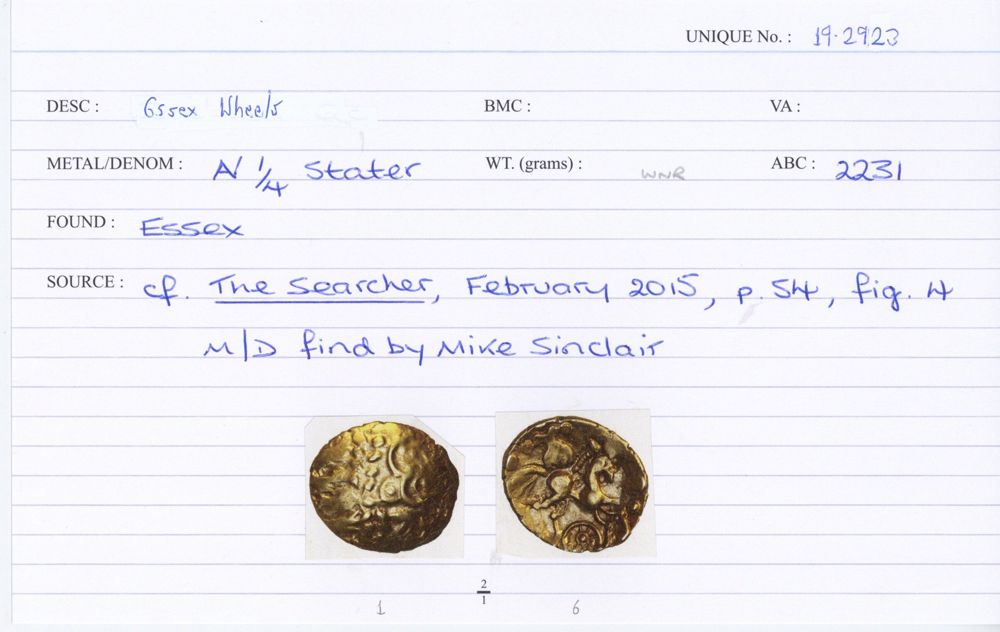 UNIQUE No. : 19.2923
DESC : Essex Wheels BMC : VA :
METAL/DENOM : A/ 1/4 Stater WT. (grams) : WNR ABC : 2231
FOUND : Essex
SOURCE : cf. The Searcher, February 2015, p. 54, fig. 4
M/D find by Mike Sinclair
2/1
1 6